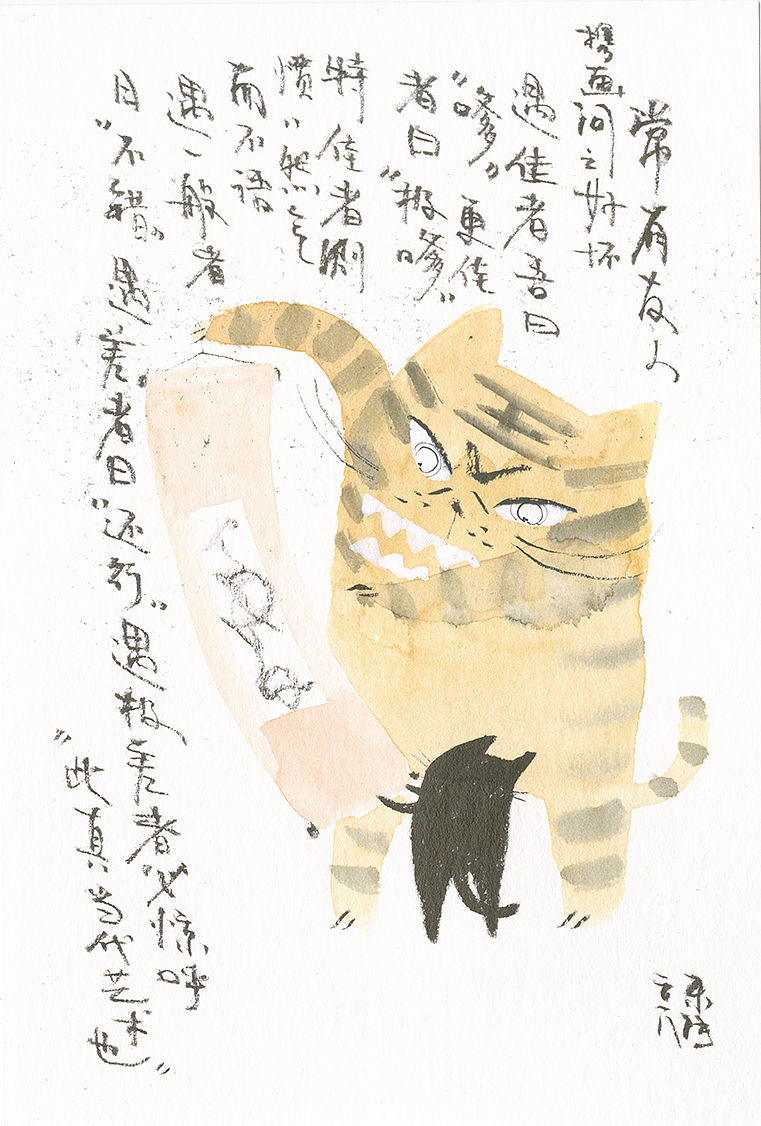 常有友人
携画问之好坏
遇佳者吾曰
"嗲"更佳
者曰"极嗲"
特佳者则
愤〃然气
而不语
遇一般者
曰"不错"遇差者曰"还行"遇极差者必惊呼
"此真当代艺术也"